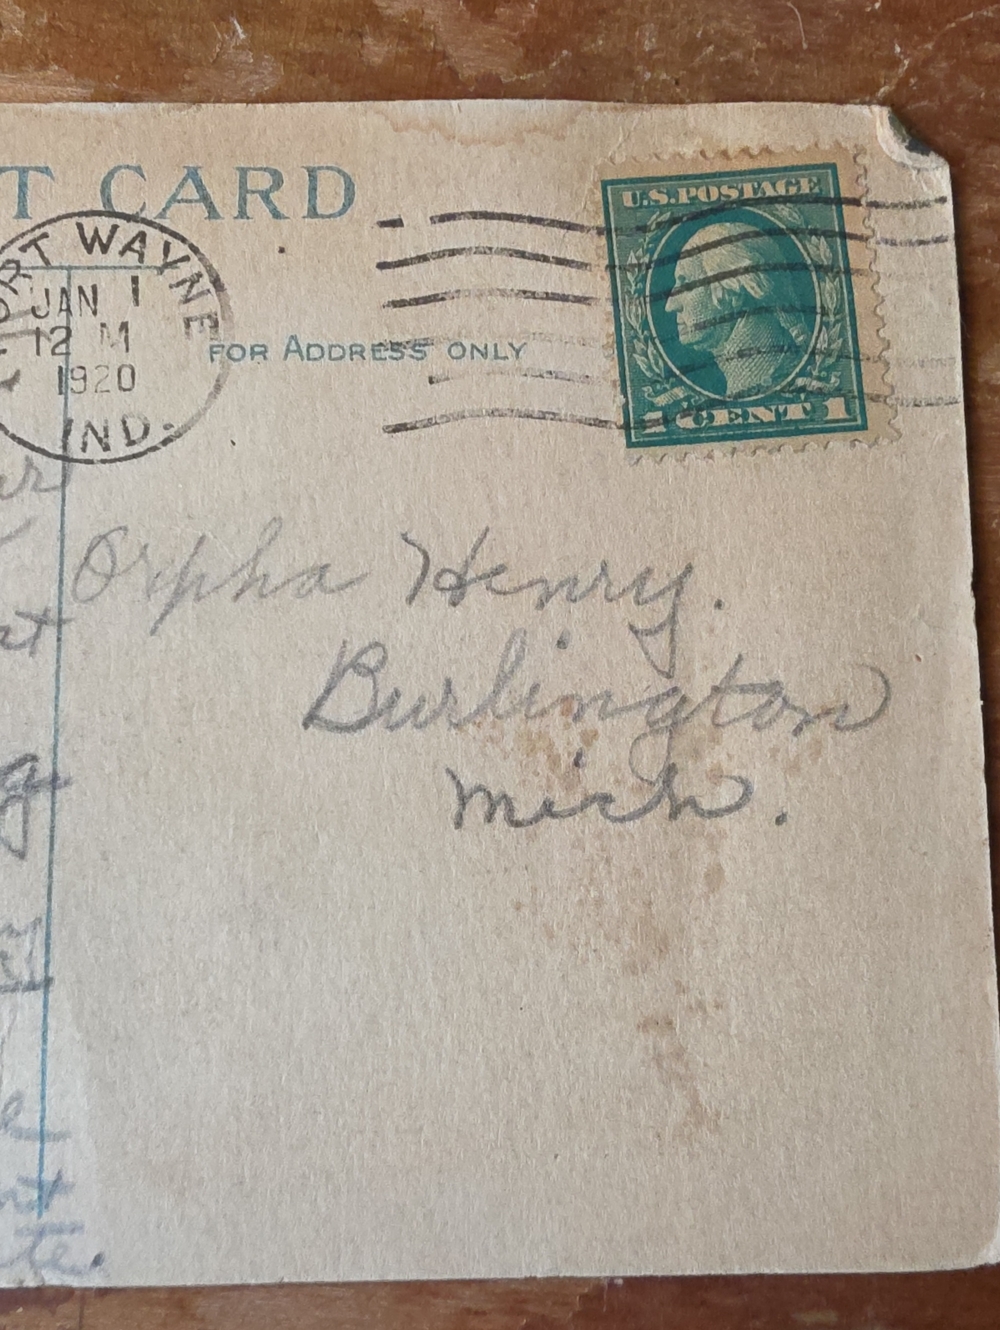 T CARD
U.S.POSTAGE
1 CENT 1
FORT WAYNE
JAN 1
12 M
1920
IND.
FOR ADDRESS ONLY
Orpha Henry.
Burlington
Mich.